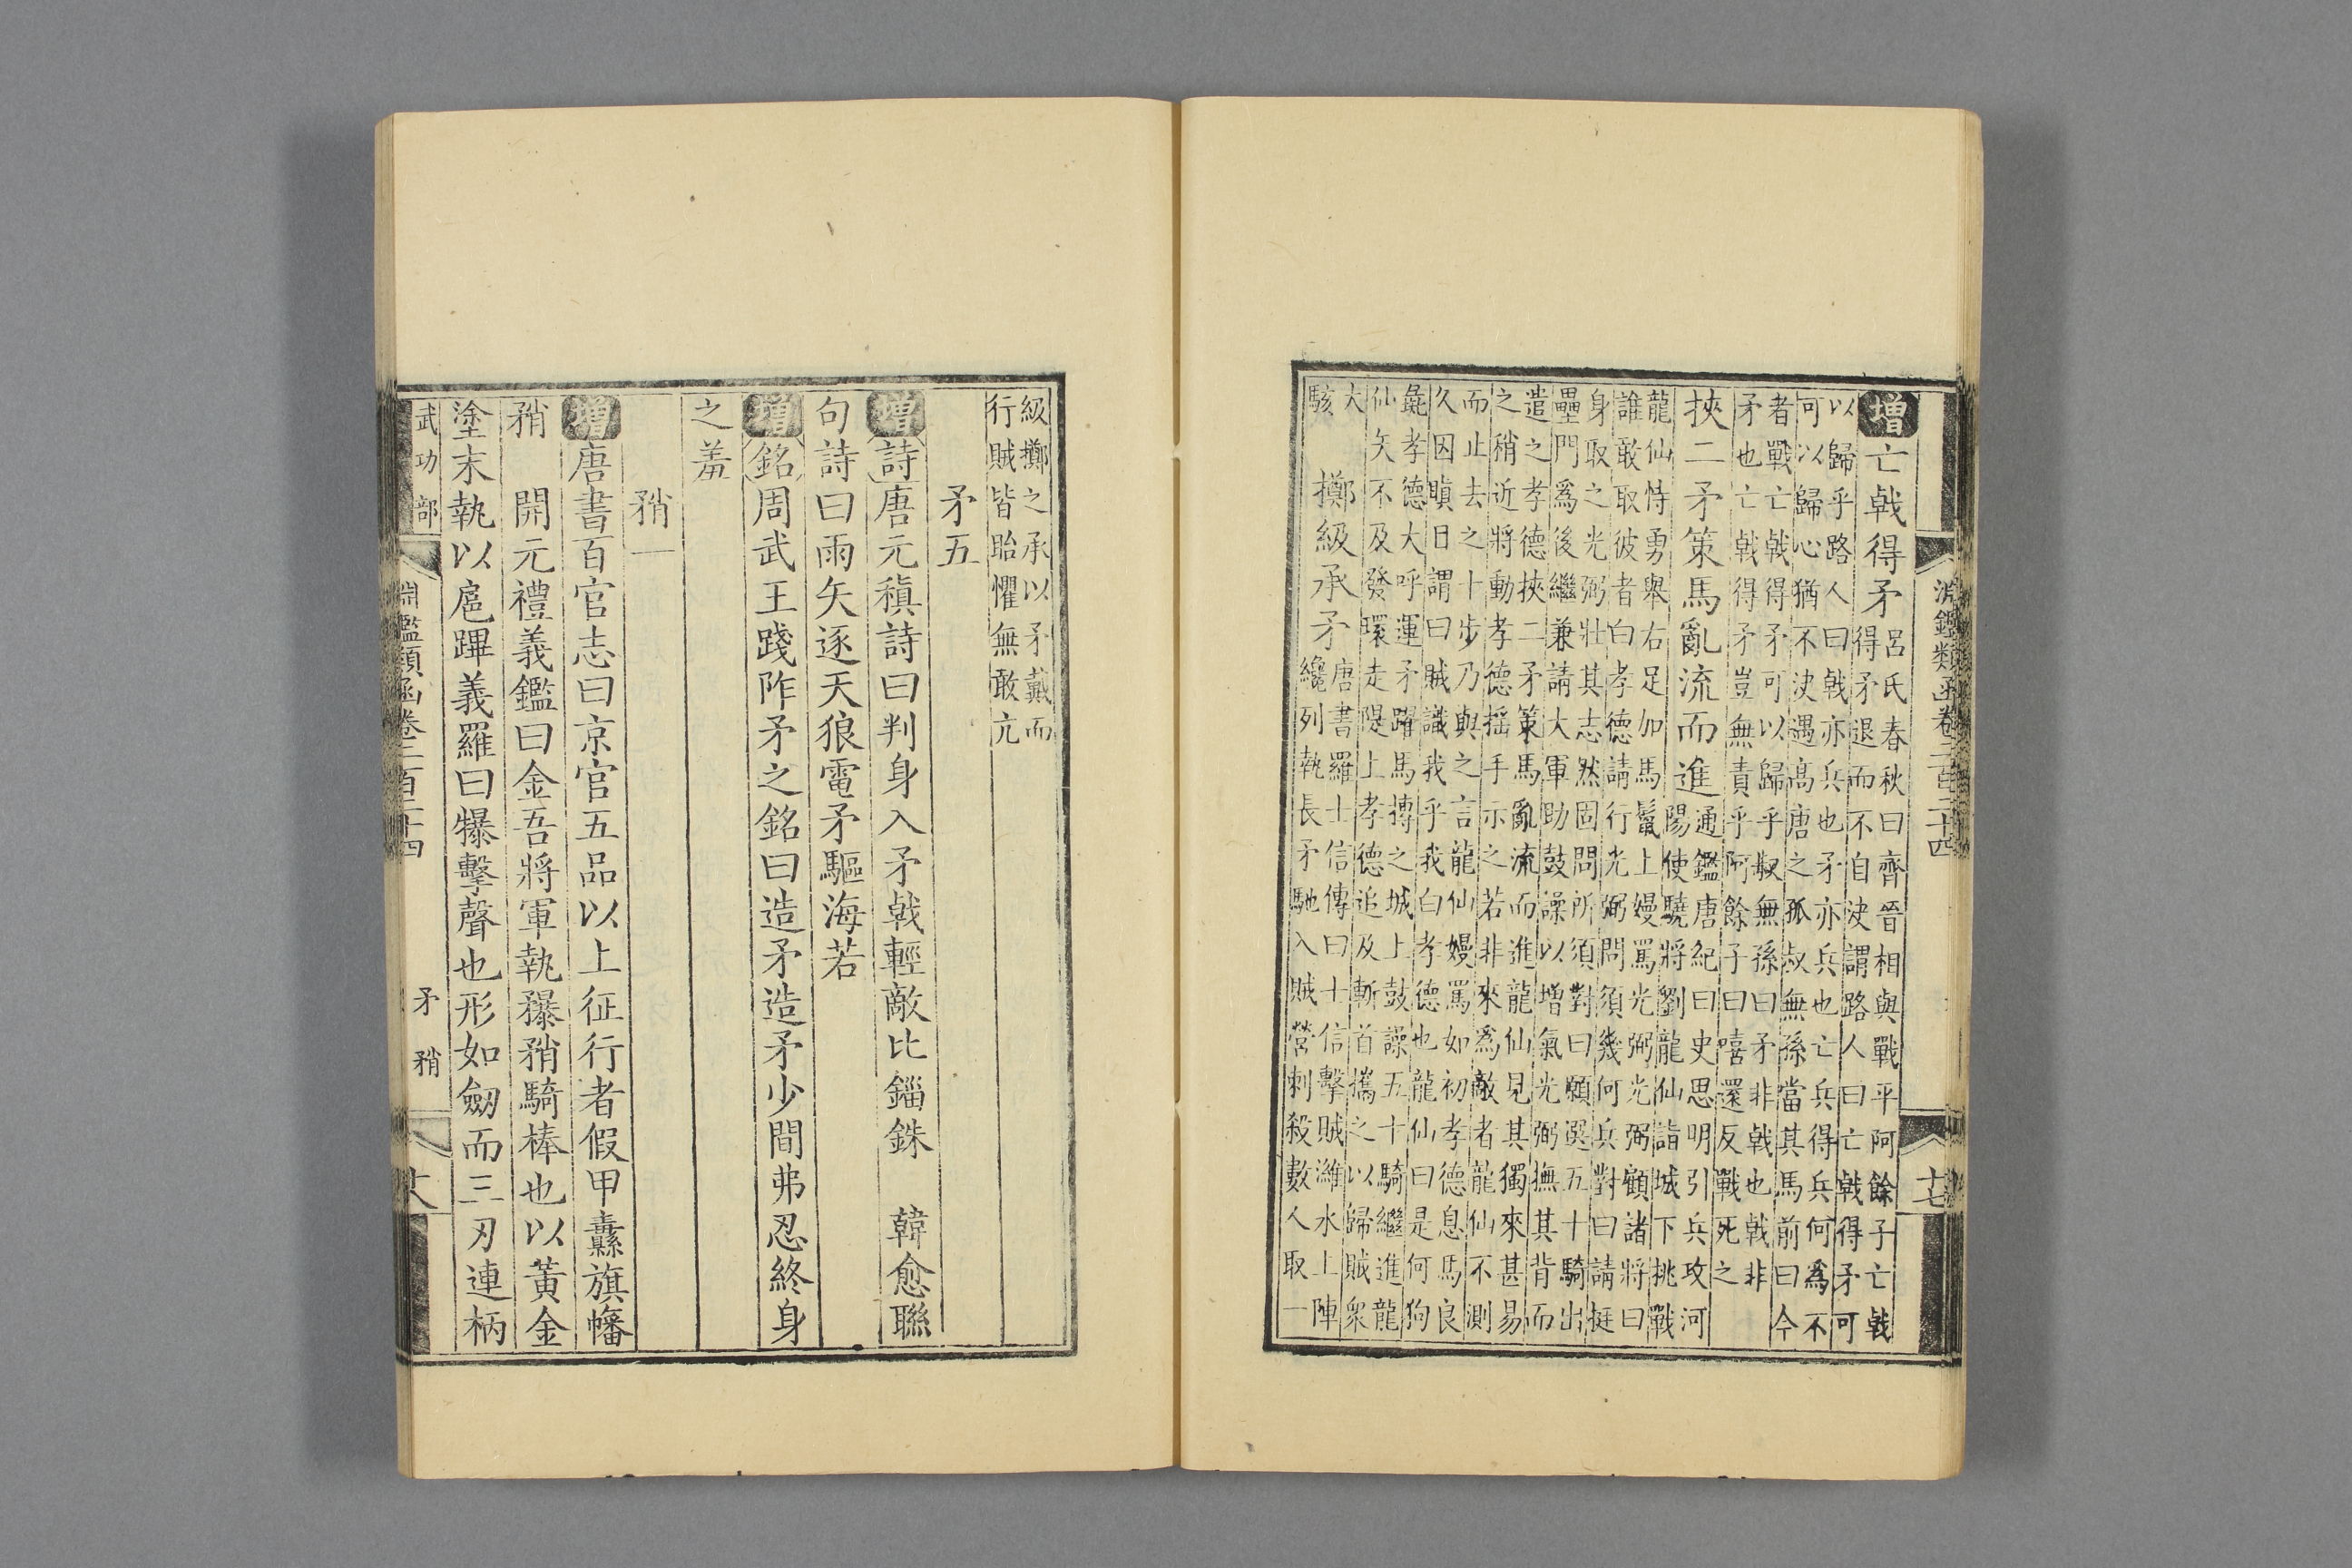 淵鑑類函卷二百二十四 十七
增亡戟得矛 呂氏春秋曰齊晉相與戰平阿餘子亡戟
得矛退而不自决謂路人曰亡戟得矛可
以歸乎路人曰戟亦兵也矛亦兵也亡兵得兵何為不
可以歸心猶不决遇高唐之孤叔無孫當其馬前曰今
者戰亡戟得矛可以歸乎叔無孫曰矛非戟也戟非
矛也亡戟得矛豈無責乎阿餘子曰嘻還反戰死之
挾二矛策馬亂流而進 通鑑唐紀曰史思明引兵攻河
陽使驍將劉龍仙詣城下挑戰
龍仙恃勇舉右足加馬鬣上嫚罵光弼光弼顧諸將曰
誰敢取彼者白孝德請行光弼問須幾何兵對曰請挺
身取之光弼壯其志然固問所須對曰願選五十騎出
壘門為後繼兼請大軍助鼓譟以增氣光弼撫其背而
遣之孝德挾二矛策馬亂流而進龍仙見其獨來甚易
之稍近將動孝德搖手示之若非來為敵者龍仙不測
而止去之十步乃與之言龍仙嫚罵如初孝德息馬良
久因瞋日謂曰賊識我乎我白孝德也龍仙曰是何狗
彘孝德大呼運矛躍馬搏之城上鼓譟五十騎繼進龍
仙矢不及發環走隄上孝德追及斬首攜之以歸賊衆
大
駭
擲級承矛 唐書羅士信傳曰士信擊賊濰水上陣
纔列執長矛馳入賊營刺殺數人取一
級擲之承以矛戴而
行賊皆眙懼無敢亢
矛五
增詩唐元稹詩曰判身入矛戟輕敵比錙銖 韓愈聯
句詩曰雨矢逐天狼電矛驅海若
增銘周武王踐阼矛之銘曰造矛造矛少間弗忍終身
之羞
矟一
增唐書百官志曰京官五品以上征行者假甲纛旗幡
矟 開元禮義鑑曰金吾將軍執𤡂矟騎棒也以黃金
塗末執以扈蹕義羅曰犦擊聲也形如劒而三刃連柄
武功部 淵鑑類函卷二百二十四 矛 矟 十八